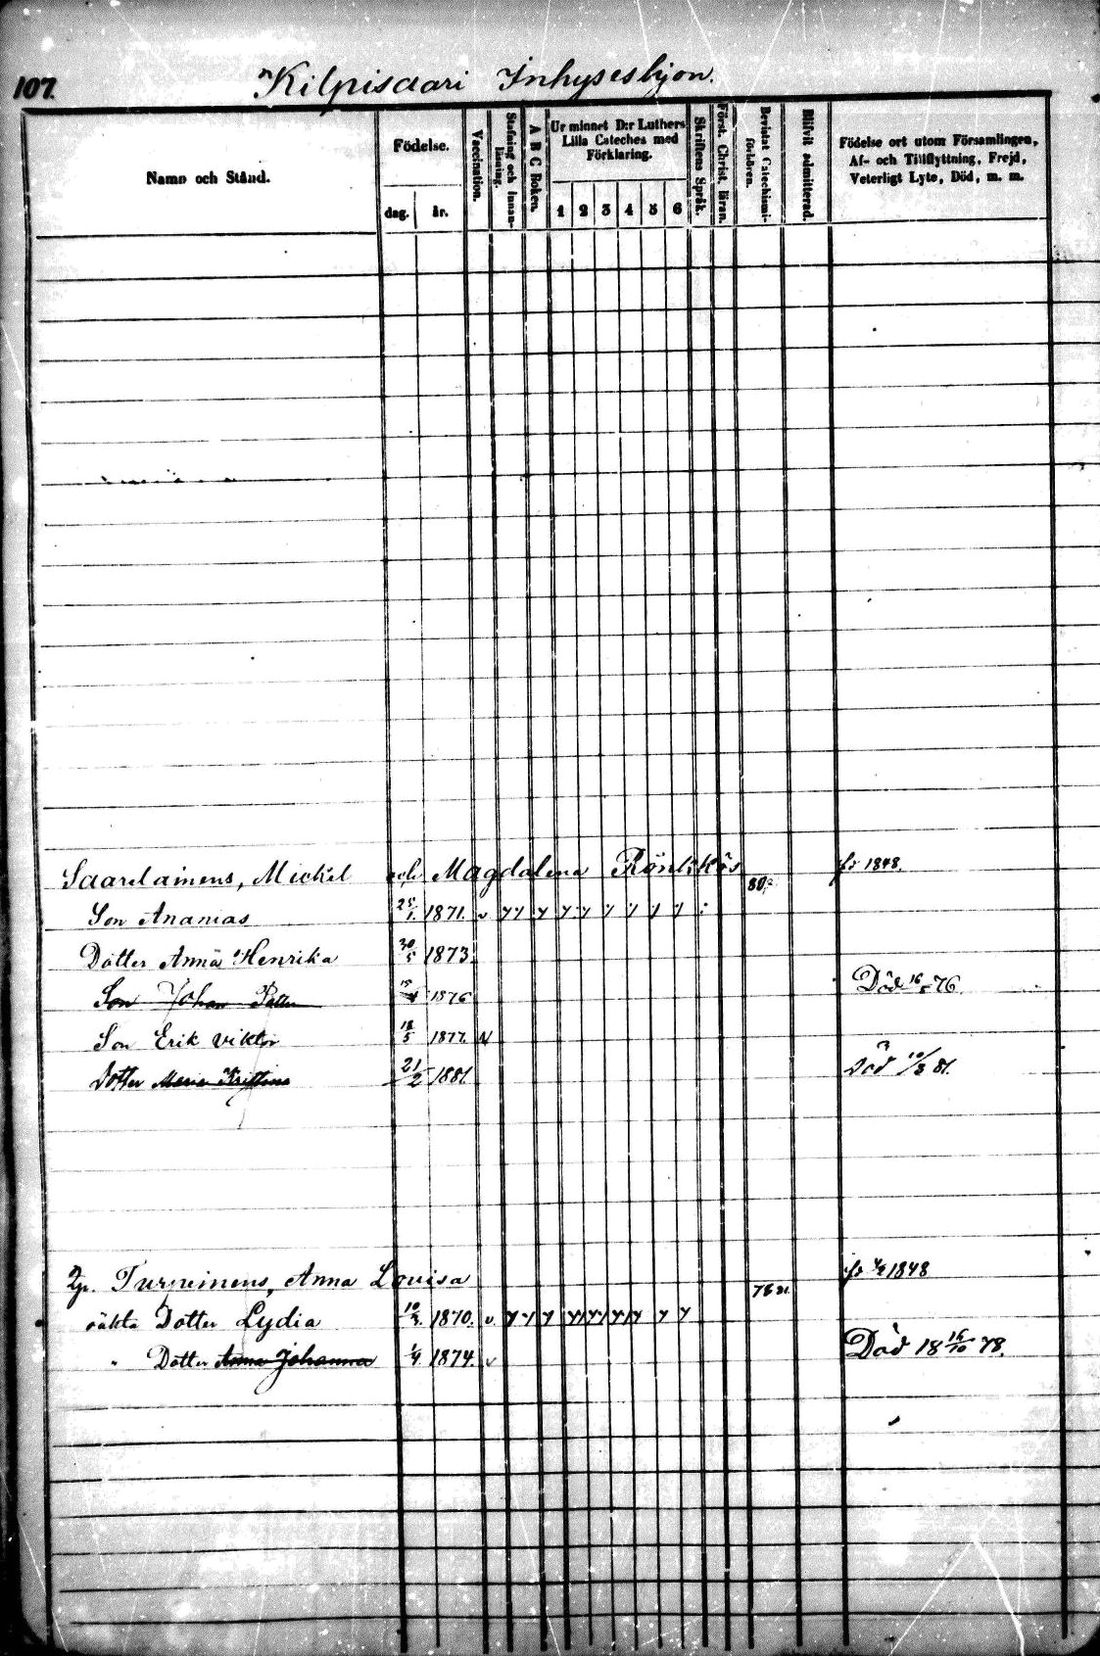 107.
Kilpisaari Inhysesbjon.
Namn och Stånd.
Födelse.
dag.
år.
Vaccination.
Stafning och Innanläsning.
A B C Boken.
Ur minnet D:r Luthers Lilla Cateches med Förklaring.
1 2 3 4 5 6
Skriftens Språk.
Först. Christ. läran.
Bevistat Catechismi-förhören.
Blifvit admitterad.
Födelse ort utom Församlingen, Af- och Tillflyttning, Frejd, Veterligt Lyte, Död, m. m.
Saarelainens, Mickel och Magdalena Rönkkös 80 1848.
Son Ananias 1871.
Dotter Anna Henrika 30/5 1873.
Son Johan Petter 1876 Död 76.
Son Erik Viktor 18/5 1877.
Dotter Maria Kristina 21/2 1881. Död 10/3 81.
Turpeinens, Anna Lovisa 1848
oäkta Dotter Lydia 1870.
" Dotter Anna Johanna 1/4 1874. Död 18 16/10 78.